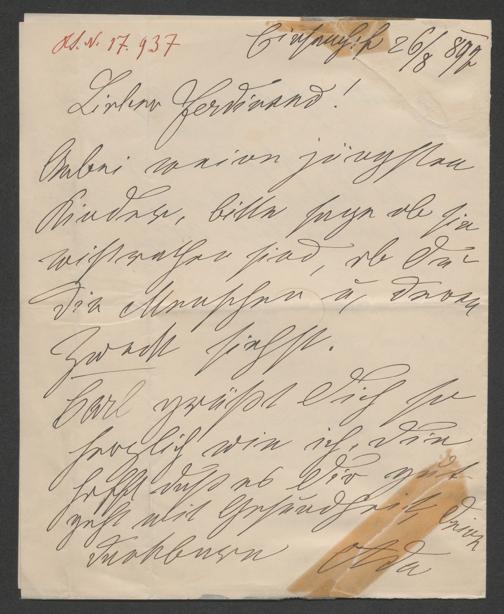 H.I.N. 17.937
26/8 892
Lieber Ferdinand!
Anbei meine jüngsten
Kinder, bitte sage ob sie
mißrathen sind, ob Du
die Menschen u. deren
Zweck siehst.
Carl grüßt Dich so
herzlich wie ich, die
hofft daß es Dir gut
geht mit Gesundheit, Deine
dankbare Ada